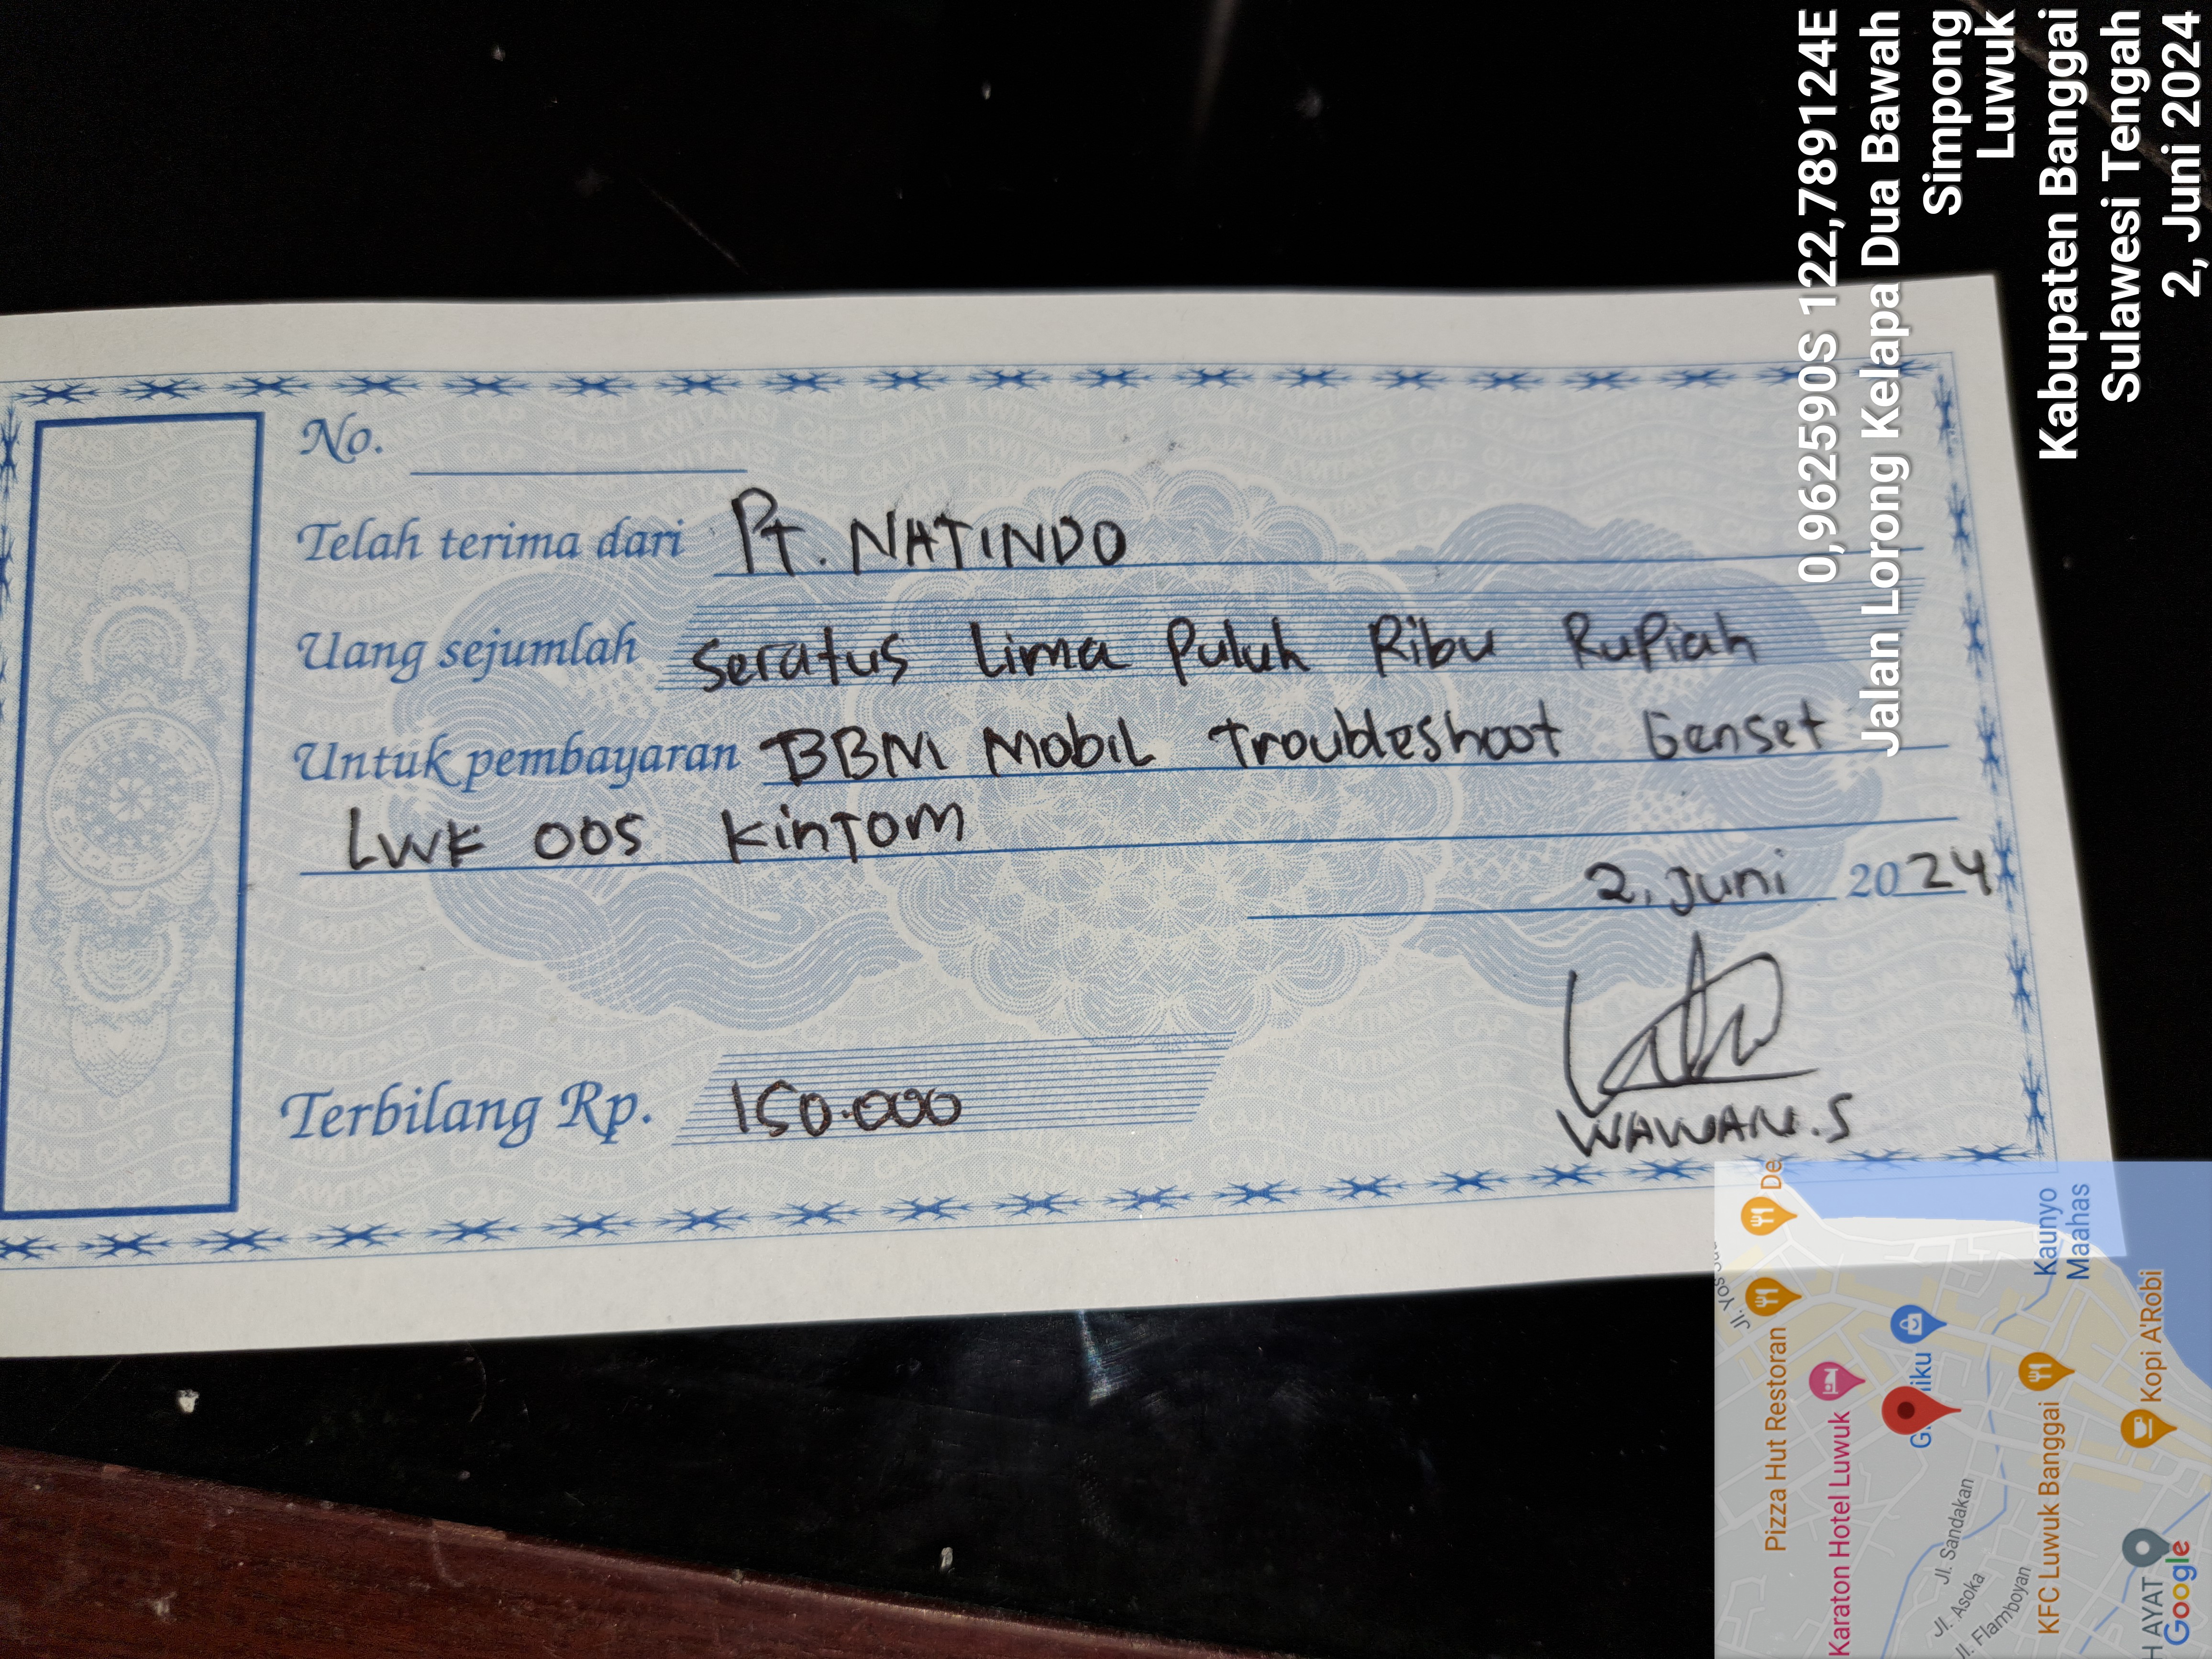 No.
Telah terima dari Pt. NATINDO
Uang sejumlah Seratus Lima Puluh Ribu Rupiah
Untuk pembayaran BBM Mobil Troubleshoot Genset
LWK 005 Kintom
2, Juni 2024
Terbilang Rp. 150.000
WAWAN.S
0,9625590S 122,7891124E
Jalan Lorong Kelapa Dua Bawah
Simpong
Luwuk
Kabupaten Banggai
Sulawesi Tengah
2, Juni 2024
De
Jl. Yos
Pizza Hut Restoran
Karaton Hotel Luwuk
iku
Kaunyo
Maahas
Jl. Sandakan
Jl. Asoka
Jl. Flamboyan
KFC Luwuk Banggai
Kopi A'Robi
H AYAT
Google